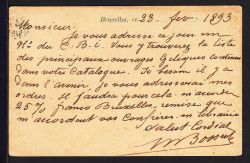 Bruxelles, ce 28 fev. 1893
Monsieur.
Je vous adresse ce jour un
No. du C.B.L. Vous y trouverez la liste
des principaux ouvrages
dans votre Catalogue. Si besoin il y a
dans l'avenir, je vous adresserai mes
ordres. Il faudra pour cela m'accorder
25% franco Bruxelles, remise que
m'accordent vos Confrères en librairie
Salut Cordial